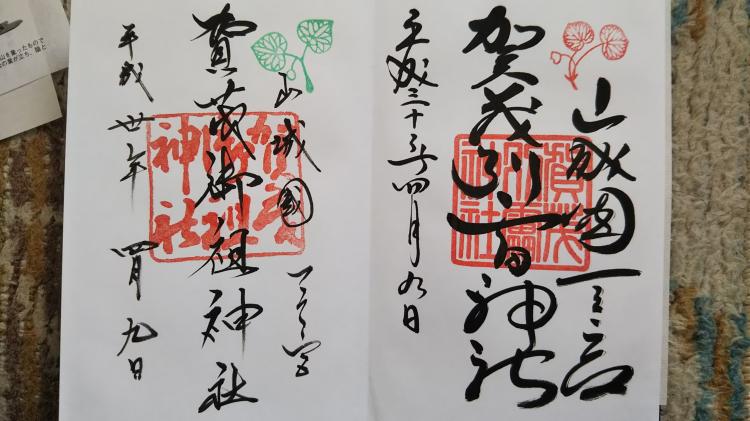 山城國一之宮
賀茂別雷神社
平成三十年四月九日
山城國
一之宮
賀茂御祖神社
賀茂
御祖
神社
平成卅年四月九日